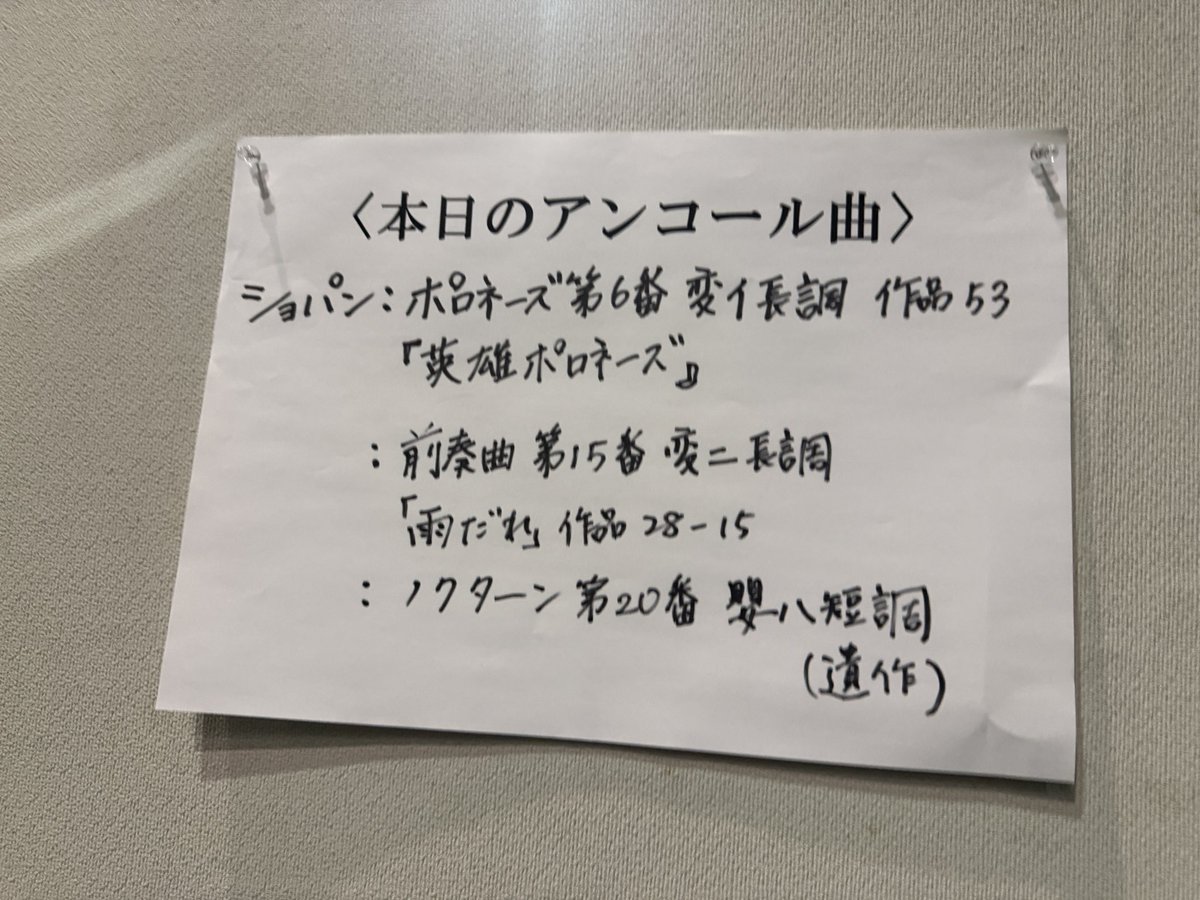 〈本日のアンコール曲〉
ショパン:ポロネーズ第6番 変イ長調 作品53
『英雄ポロネーズ』
:前奏曲 第15番 変ニ長調
「雨だれ」作品28-15
:ノクターン第20番 嬰ハ短調
(遺作)